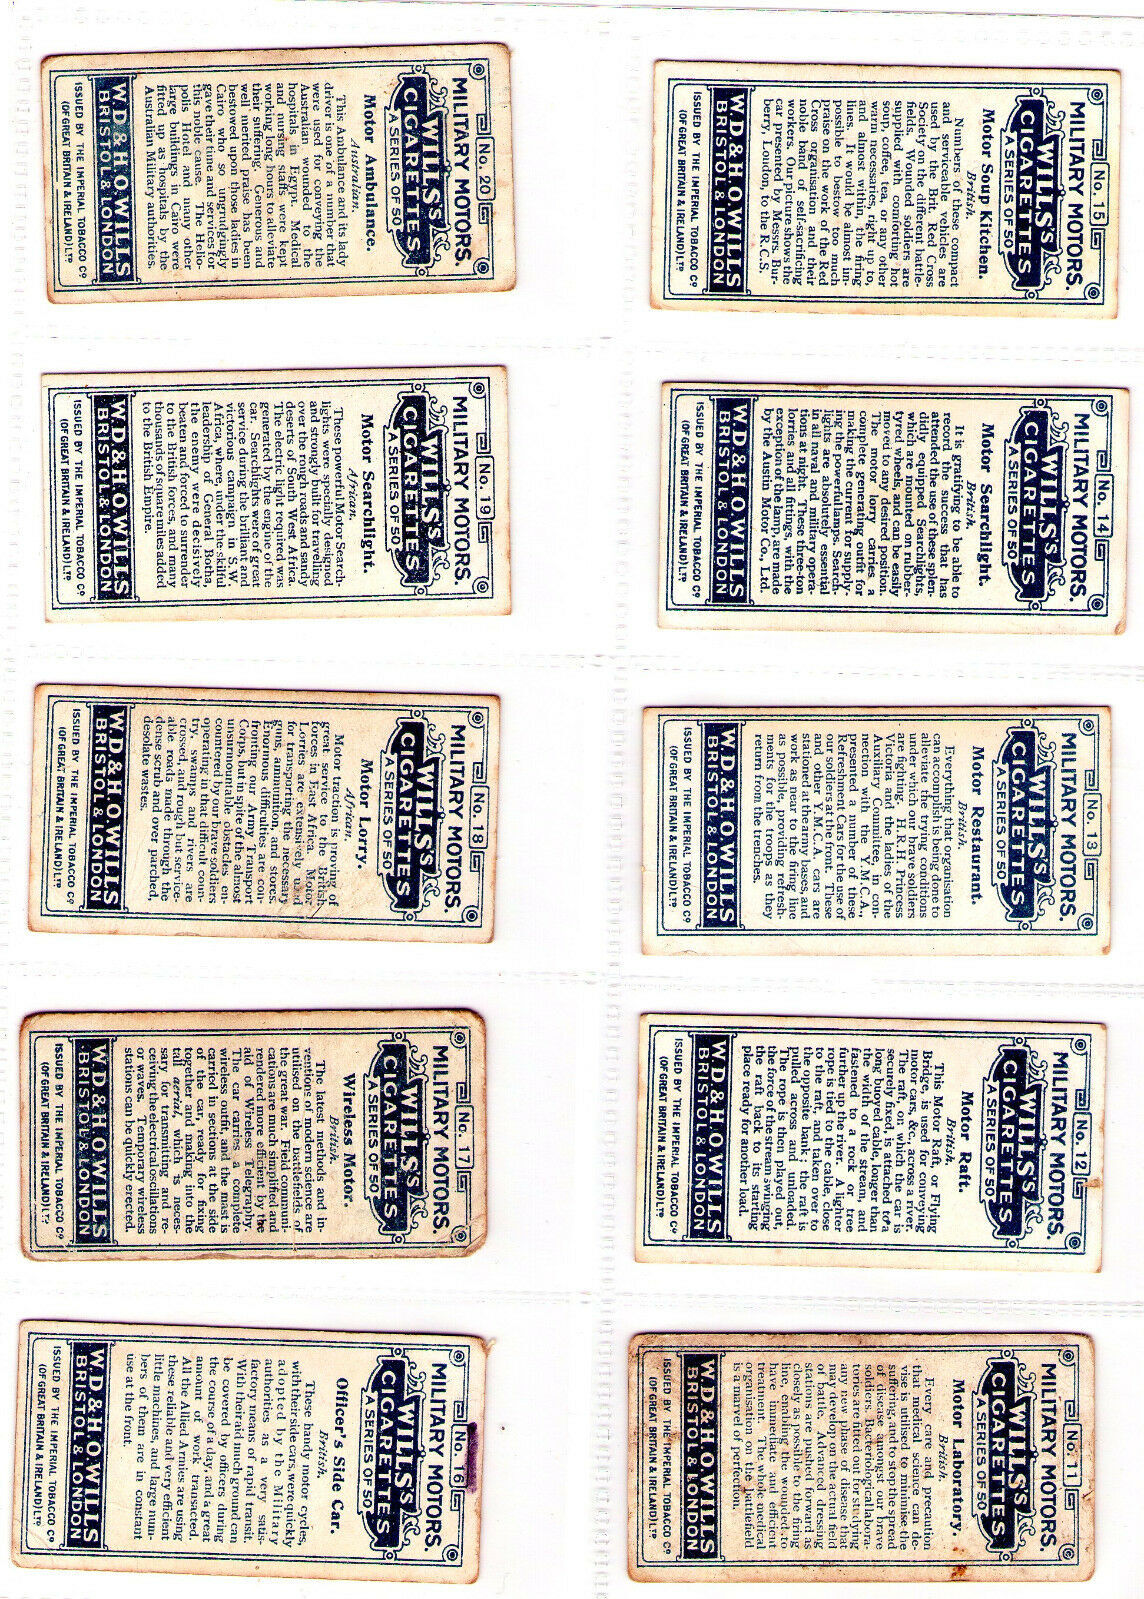 No. 20
MILITARY MOTORS.
WILLS'S
CIGARETTES
A SERIES OF 50
Motor Ambulance.
Australian.
This Ambulance and its lady
driver is one of a number that
were used for conveying the
Australian wounded to the
hospitals in Egypt. Medical
and nursing staffs were kept
working long hours to alleviate
their suffering. Generous and
well merited praise has been
bestowed upon those ladies in
Cairo who so ungrudgingly
gave their time and services for
this noble cause. The Helio-
polis Hotel and many other
large buildings in Cairo were
fitted up as hospitals by the
Australian Military authorities.
W.D. & H.O. WILLS
BRISTOL & LONDON
ISSUED BY THE IMPERIAL TOBACCO Co
(OF GREAT BRITAIN & IRELAND) LTD
No. 15
MILITARY MOTORS.
WILLS'S
CIGARETTES
A SERIES OF 50
Motor Soup Kitchen.
British.
Numbers of these compact
and serviceable vehicles are
used by the Brit. Red Cross
Society on the different battle-
fields. Wounded soldiers are
supplied with comforting hot
soup, coffee, tea, or any other
warm necessaries, right up to,
and almost within, the firing
lines. It would be almost im-
possible to bestow too much
praise on the work of the Red
Cross organisation and their
noble band of self-sacrificing
workers. Our picture shows the
car presented by Messrs. Bur-
berry, London, to the R.C.S.
W.D. & H.O. WILLS
BRISTOL & LONDON
ISSUED BY THE IMPERIAL TOBACCO Co
(OF GREAT BRITAIN & IRELAND) LTD
No. 19
MILITARY MOTORS.
WILLS'S
CIGARETTES
A SERIES OF 50
Motor Searchlight.
African.
These powerful Motor Search-
lights were specially designed
and strongly built for travelling
over the rough roads and sandy
deserts of South West Africa.
The electric light required was
generated by the engine of the
car. Searchlights were of great
service during the brilliant and
victorious campaign in S.W.
Africa, where, under the skilful
leadership of General Botha,
the enemy were decisively
beaten and forced to surrender
to the British forces, and many
thousands of square miles added
to the British Empire.
W.D. & H.O. WILLS
BRISTOL & LONDON
ISSUED BY THE IMPERIAL TOBACCO Co
(OF GREAT BRITAIN & IRELAND) LTD
No. 14
MILITARY MOTORS.
WILLS'S
CIGARETTES
A SERIES OF 50
Motor Searchlight.
British.
It is gratifying to be able to
record the success that has
attended the use of these splen-
didly equipped Searchlights,
which are mounted on rubber-
tyred wheels, and can be easily
moved to any desired position.
The motor lorry carries a
complete generating outfit for
making the current for supply-
ing the powerful lamps. Search-
lights are absolutely essential
in all naval and military opera-
tions at night. These three-ton
lorries and all fittings, with the
exception of the lamp, are made
by the Austin Motor Co., Ltd.
W.D. & H.O. WILLS
BRISTOL & LONDON
ISSUED BY THE IMPERIAL TOBACCO Co
(OF GREAT BRITAIN & IRELAND) LTD
No. 18
MILITARY MOTORS.
WILLS'S
CIGARETTES
A SERIES OF 50
Motor Lorry.
African.
Motor traction is proving of
great service to the British
forces in East Africa. Motor
Lorries are extensively used
for transporting the necessary
guns, ammunition, and stores.
Enormous difficulties are con-
fronting our Army Transport
Corps, but in spite of the almost
unsurmountable obstacles en-
countered by our brave soldiers
operating in that difficult coun-
try, swamps and rivers are
crossed, and rough but service-
able roads made through the
dense scrub and over parched,
desolate wastes.
W.D. & H.O. WILLS
BRISTOL & LONDON
ISSUED BY THE IMPERIAL TOBACCO Co
(OF GREAT BRITAIN & IRELAND) LTD
No. 13
MILITARY MOTORS.
WILLS'S
CIGARETTES
A SERIES OF 50
Motor Restaurant.
British.
Everything that organisation
can accomplish is being done to
alleviate the trying conditions
under which our brave soldiers
are fighting. H.R.H. Princess
Victoria and the ladies of the
Auxiliary Committee, in con-
nection with the Y.M.C.A.,
presented a number of these
Refreshment Cars for the use of
our soldiers at the front. These
and other Y.M.C.A. cars are
stationed at the army bases, and
work as near to the firing line
as possible, providing refresh-
ments for the troops as they
return from the trenches.
W.D. & H.O. WILLS
BRISTOL & LONDON
ISSUED BY THE IMPERIAL TOBACCO Co
(OF GREAT BRITAIN & IRELAND) LTD
No. 17
MILITARY MOTORS.
WILLS'S
CIGARETTES
A SERIES OF 50
Wireless Motor.
British.
The latest methods and in-
ventions of modern science are
utilised on the battlefields of
the great war. Field communi-
cations are much simplified and
rendered more efficient by the
aid of Wireless Telegraphy.
The car carries a complete
wireless outfit and the mast is
carried in sections at the side
of the car, ready for fixing
together and making into the
tall aerial, which is neces-
sary for transmitting and re-
ceiving the electrical oscillations
or waves. Temporary wireless
stations can be quickly erected.
W.D. & H.O. WILLS
BRISTOL & LONDON
ISSUED BY THE IMPERIAL TOBACCO Co
(OF GREAT BRITAIN & IRELAND) LTD
No. 12
MILITARY MOTORS.
WILLS'S
CIGARETTES
A SERIES OF 50
Motor Raft.
British.
This Motor Raft, or Flying
Bridge, is used for conveying
motor cars, &c., across a river.
The raft, on which the car is
securely fixed, is attached to a
long buoyed cable, longer than
the width of the stream, and
fastened to rock or tree
further up the river. A lighter
rope is tied to the cable, close
to the raft, and taken over to
the opposite bank; the raft is
pulled across and unloaded.
The rope is then played out,
the force of the stream swinging
the raft back to its starting
place ready for another load.
W.D. & H.O. WILLS
BRISTOL & LONDON
ISSUED BY THE IMPERIAL TOBACCO Co
(OF GREAT BRITAIN & IRELAND) LTD
No. 16
MILITARY MOTORS.
WILLS'S
CIGARETTES
A SERIES OF 50
Officer's Side Car.
British.
These handy motor cycles,
with their side cars, were quickly
adopted by the Military
authorities as a very satis-
factory means of rapid transit.
With their aid much ground can
be covered by officers during
the course of a day, and a great
amount of work transacted.
All the Allied Armies are using
these reliable and very efficient
little machines, and large num-
bers of them are in constant
use at the front.
W.D. & H.O. WILLS
BRISTOL & LONDON
ISSUED BY THE IMPERIAL TOBACCO Co
(OF GREAT BRITAIN & IRELAND) LTD
No. 11
MILITARY MOTORS.
WILLS'S
CIGARETTES
A SERIES OF 50
Motor Laboratory.
British.
Every care and precaution
that medical science can de-
vise is utilised to minimise the
suffering, and to stop the spread
of disease amongst our brave
soldiers. Bacteriological labora-
tories are fitted out for studying
any new phase of disease that
may develop on the actual field
of battle. Advanced dressing
stations are pushed forward as
closely as possible to the firing
line, enabling the wounded to
have immediate and efficient
treatment. The whole medical
organisation on the battlefield
is a marvel of perfection.
W.D. & H.O. WILLS
BRISTOL & LONDON
ISSUED BY THE IMPERIAL TOBACCO Co
(OF GREAT BRITAIN & IRELAND) LTD